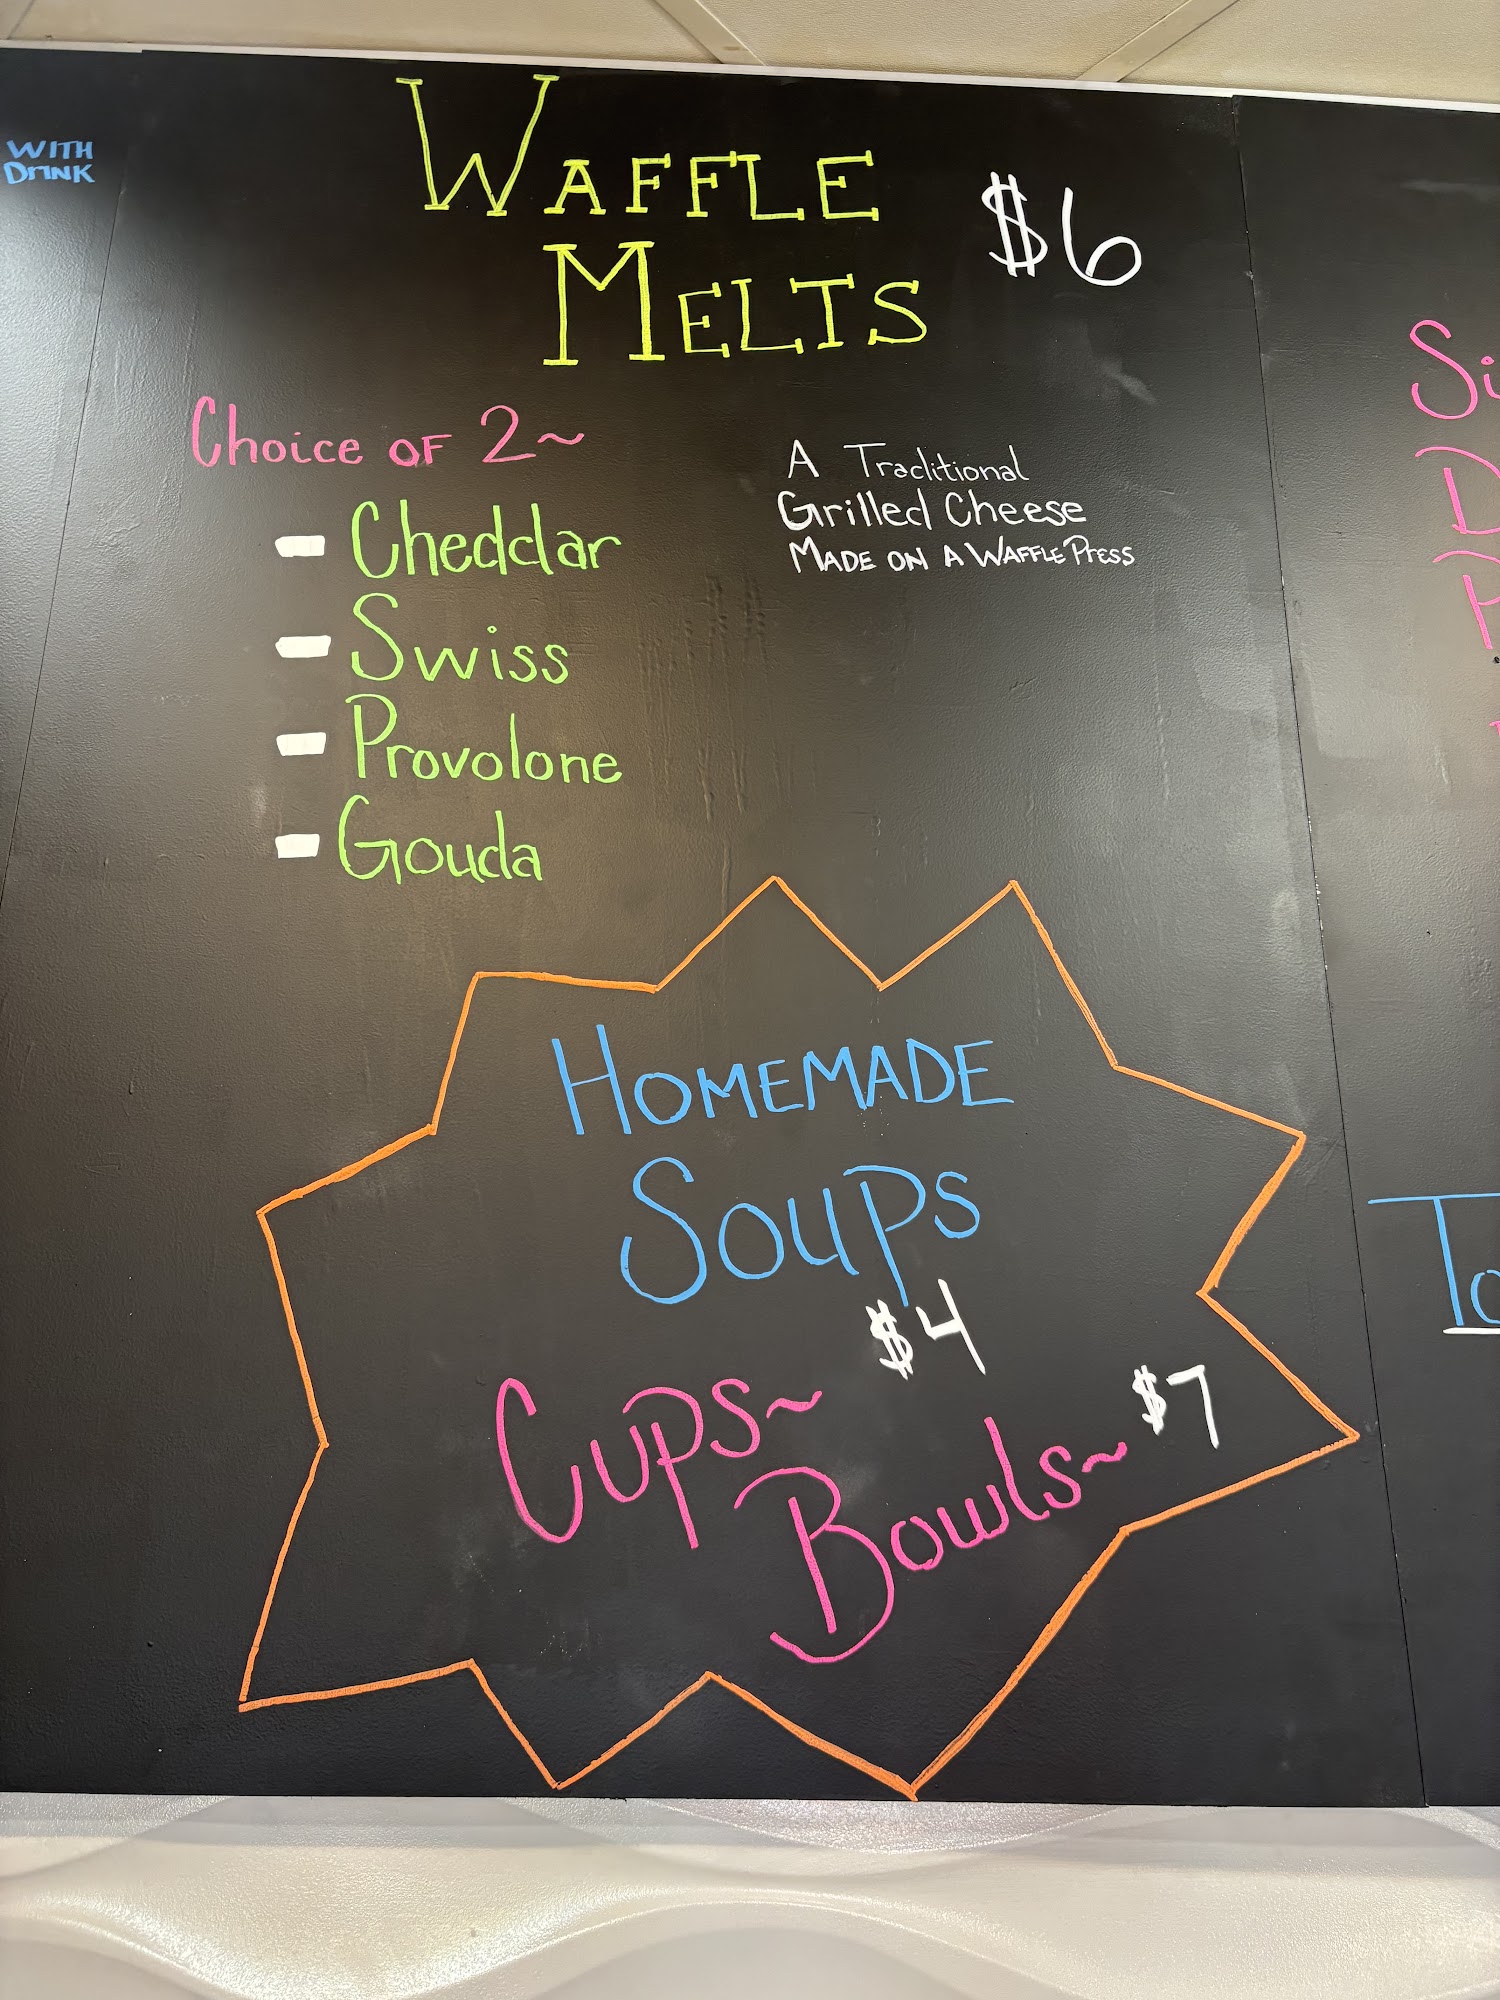 WITH
DrINK
WAFFLE
MELTS
$6
Choice OF 2~
- Cheddar
- Swiss
- Provolone
- Gouda
A Traditional
Grilled Cheese
MADE ON A WAFFLE PRESS
HOMEMADE
SOUPS
Cups~ $4
Bowls~ $7